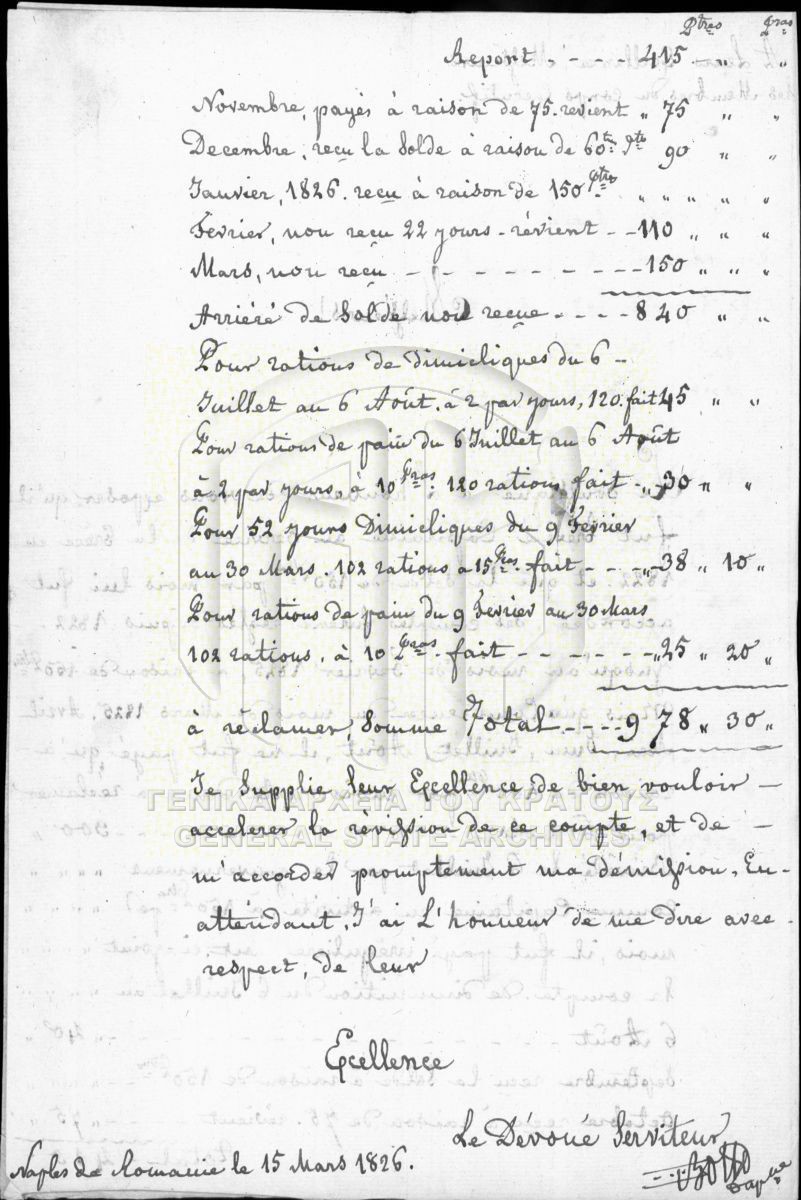 Ptres Pras
Report - - - - 415 " "
Novembre, payés à raison de 75. revient " 75 " "
Decembre, reçu la Solde à raison de 60 tres Pto 90 " "
Janvier, 1826. reçu à raison de 150 Ptres " " " " "
Fevrier, nou reçu 22 yours - révient - - 110 " " "
Mars, nou reçu - - - - - - - - - 150 " " "
Arriéré de Solde nou reçue - - - - 840 " "
Pour rations de dimicliques du 6 -
Juillet au 6 Août. à 2 par yours, 120. fait 45 " "
Pour rations de pain du 6 Juillet au 6 Août
à 2 par yours, à 10 Pras. 120 rations, fait - " 30 " "
Pour 52 yours Dimicliques du 9 Fevrier
au 30 Mars. 102 rations a 15 Pras fait - - - " 38 " 10 "
Pour rations de pain du 9 Fevrier au 30 Mars
102 rations, à 10 Pras fait - - - - - - - " 25 " 20 "
à réclamer, Somme Total - - - - 978 " 30 "
Je Supplie leur Excellence de bien vouloir -
accelerer la révission de ce compte, et de -
m'accorder promptement ma démission. En-
atténdant, J'ai L'honneur de me dire avec -
respect, de leur
Excellence
Le Dévoué Serviteur
Naples de Romanie le 15 Mars 1826.
ΓΕΝΙΚΑ ΑΡΧΕΙΑ ΤΟΥ ΚΡΑΤΟΥΣ
GENERAL STATE ARCHIVES